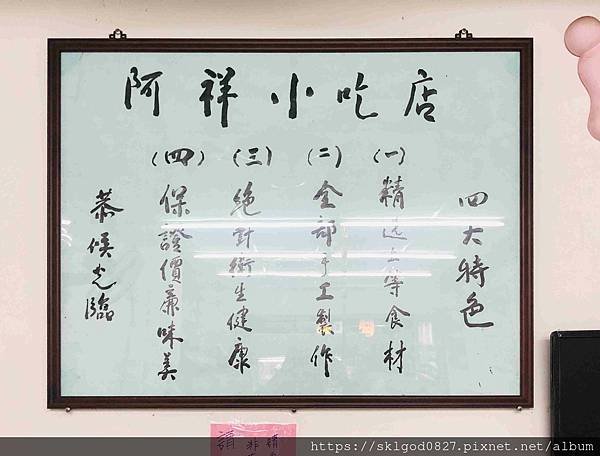 阿祥小吃店
四大特色
(一)精选上等食材
(二)全部手工製作
(三)絶對衛生健康
(四)保證價廉味美
恭候光臨
請
https://sklgod0827.pixnet.net/album